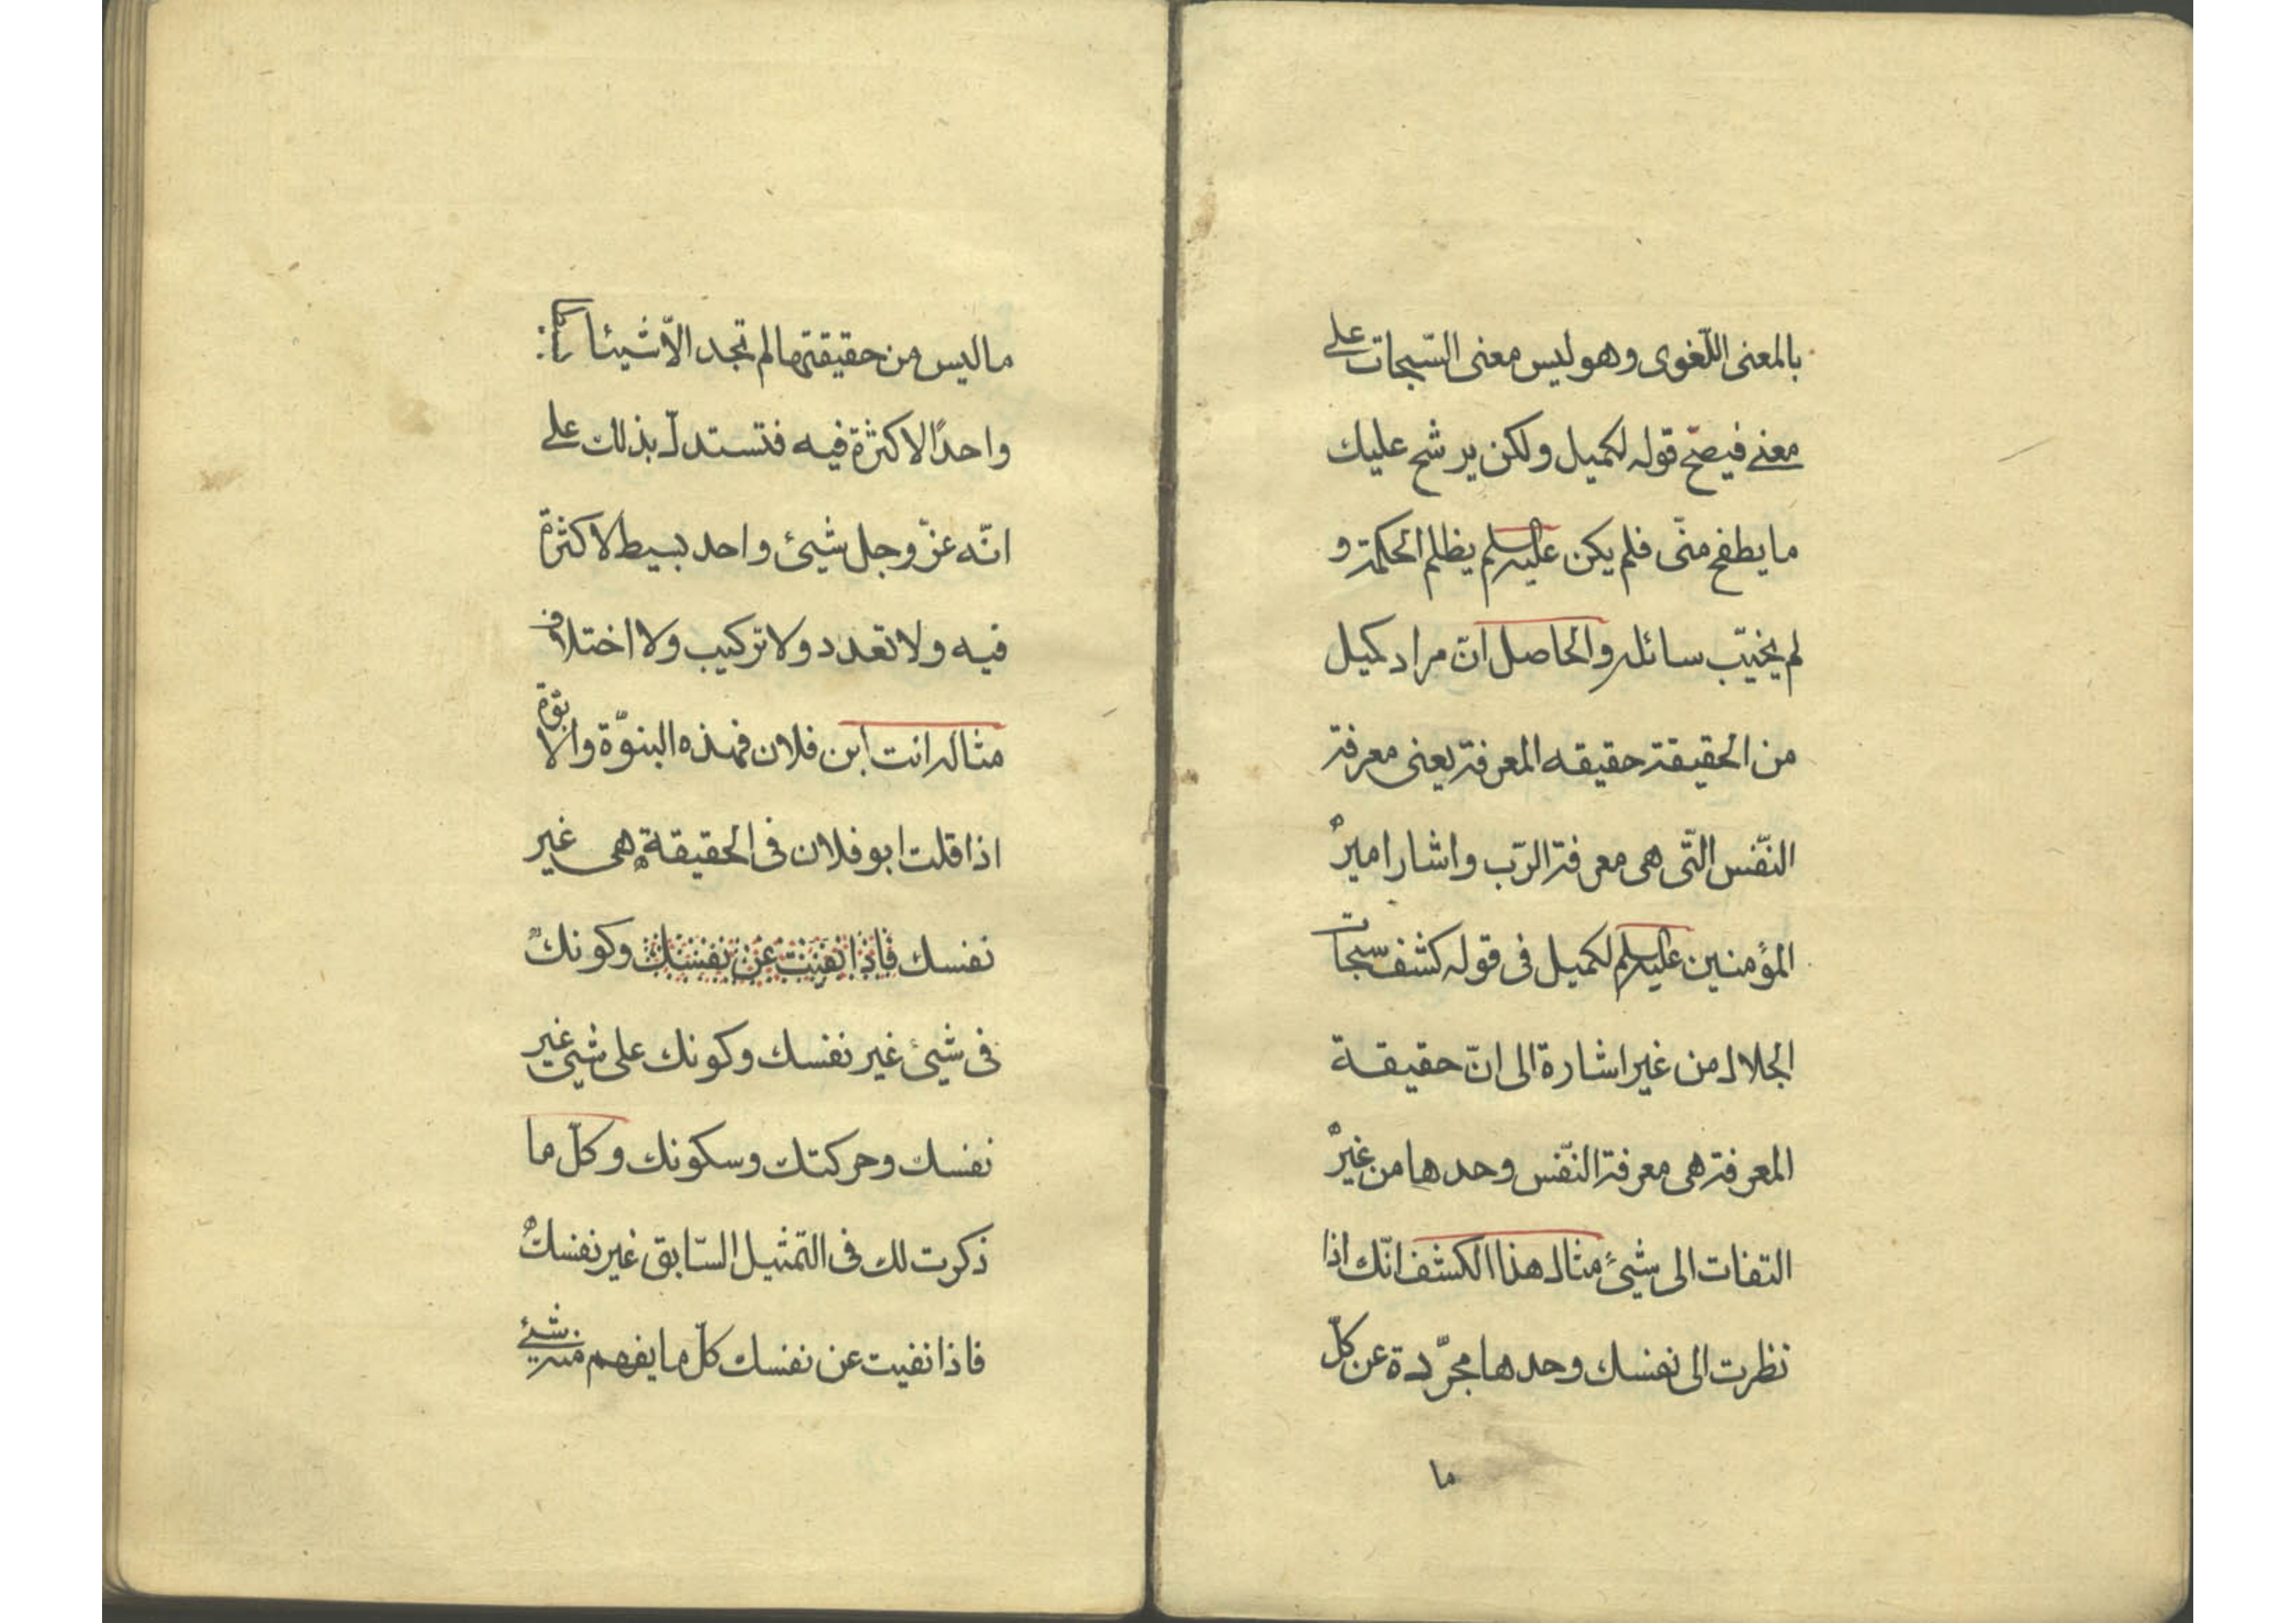 بالمعنى اللّغوى وهو ليس معنى السّبحات على
معنى فيصحّ قوله لكميل ولكن يرشح عليك
ما يطفح منّى فلم يكن عليه السلم يظلم الحكمة و
لم يخيّب سائله والحاصل انّ مراد كميل
من الحقيقة حقيقه المعرفة يعنى معرفة
النّفس الّتى هى معرفة الرّب واشار امير
المؤمنين عليه السلم لكميل فى قوله كشف سبحات
الجلال من غير اشارة الى انّ حقيقة
المعرفة هى معرفة النّفس وحدها من غير
التفات الى شئ مثال هذا الكشف انّك اذا
نظرت الى نفسك وحدها مجرّدة عن كلّ
ما
ما ليس من حقيقتها لم تجد الاّ شيئا
واحدًا لا كثرة فيه فتستدلّ بذلك على
انّه عزّ وجل شيئ واحد بسيط لا كثرة
فيه ولا تعدد ولا تركيب ولا اختلاف
مثاله انت ابن فلان فهذه البنوّة والابوّة
اذا قلت ابو فلان فى الحقيقة هى غير
نفسك فاذا نفيت عن نفسك وكونك
فى شيئ غير نفسك وكونك على شيئ غير
نفسك وحركتك وسكونك وكلّ ما
ذكرت لك فى التمثيل السّابق غير نفسك
فاذا نفيت عن نفسك كلّ ما يفهم منه شيئ